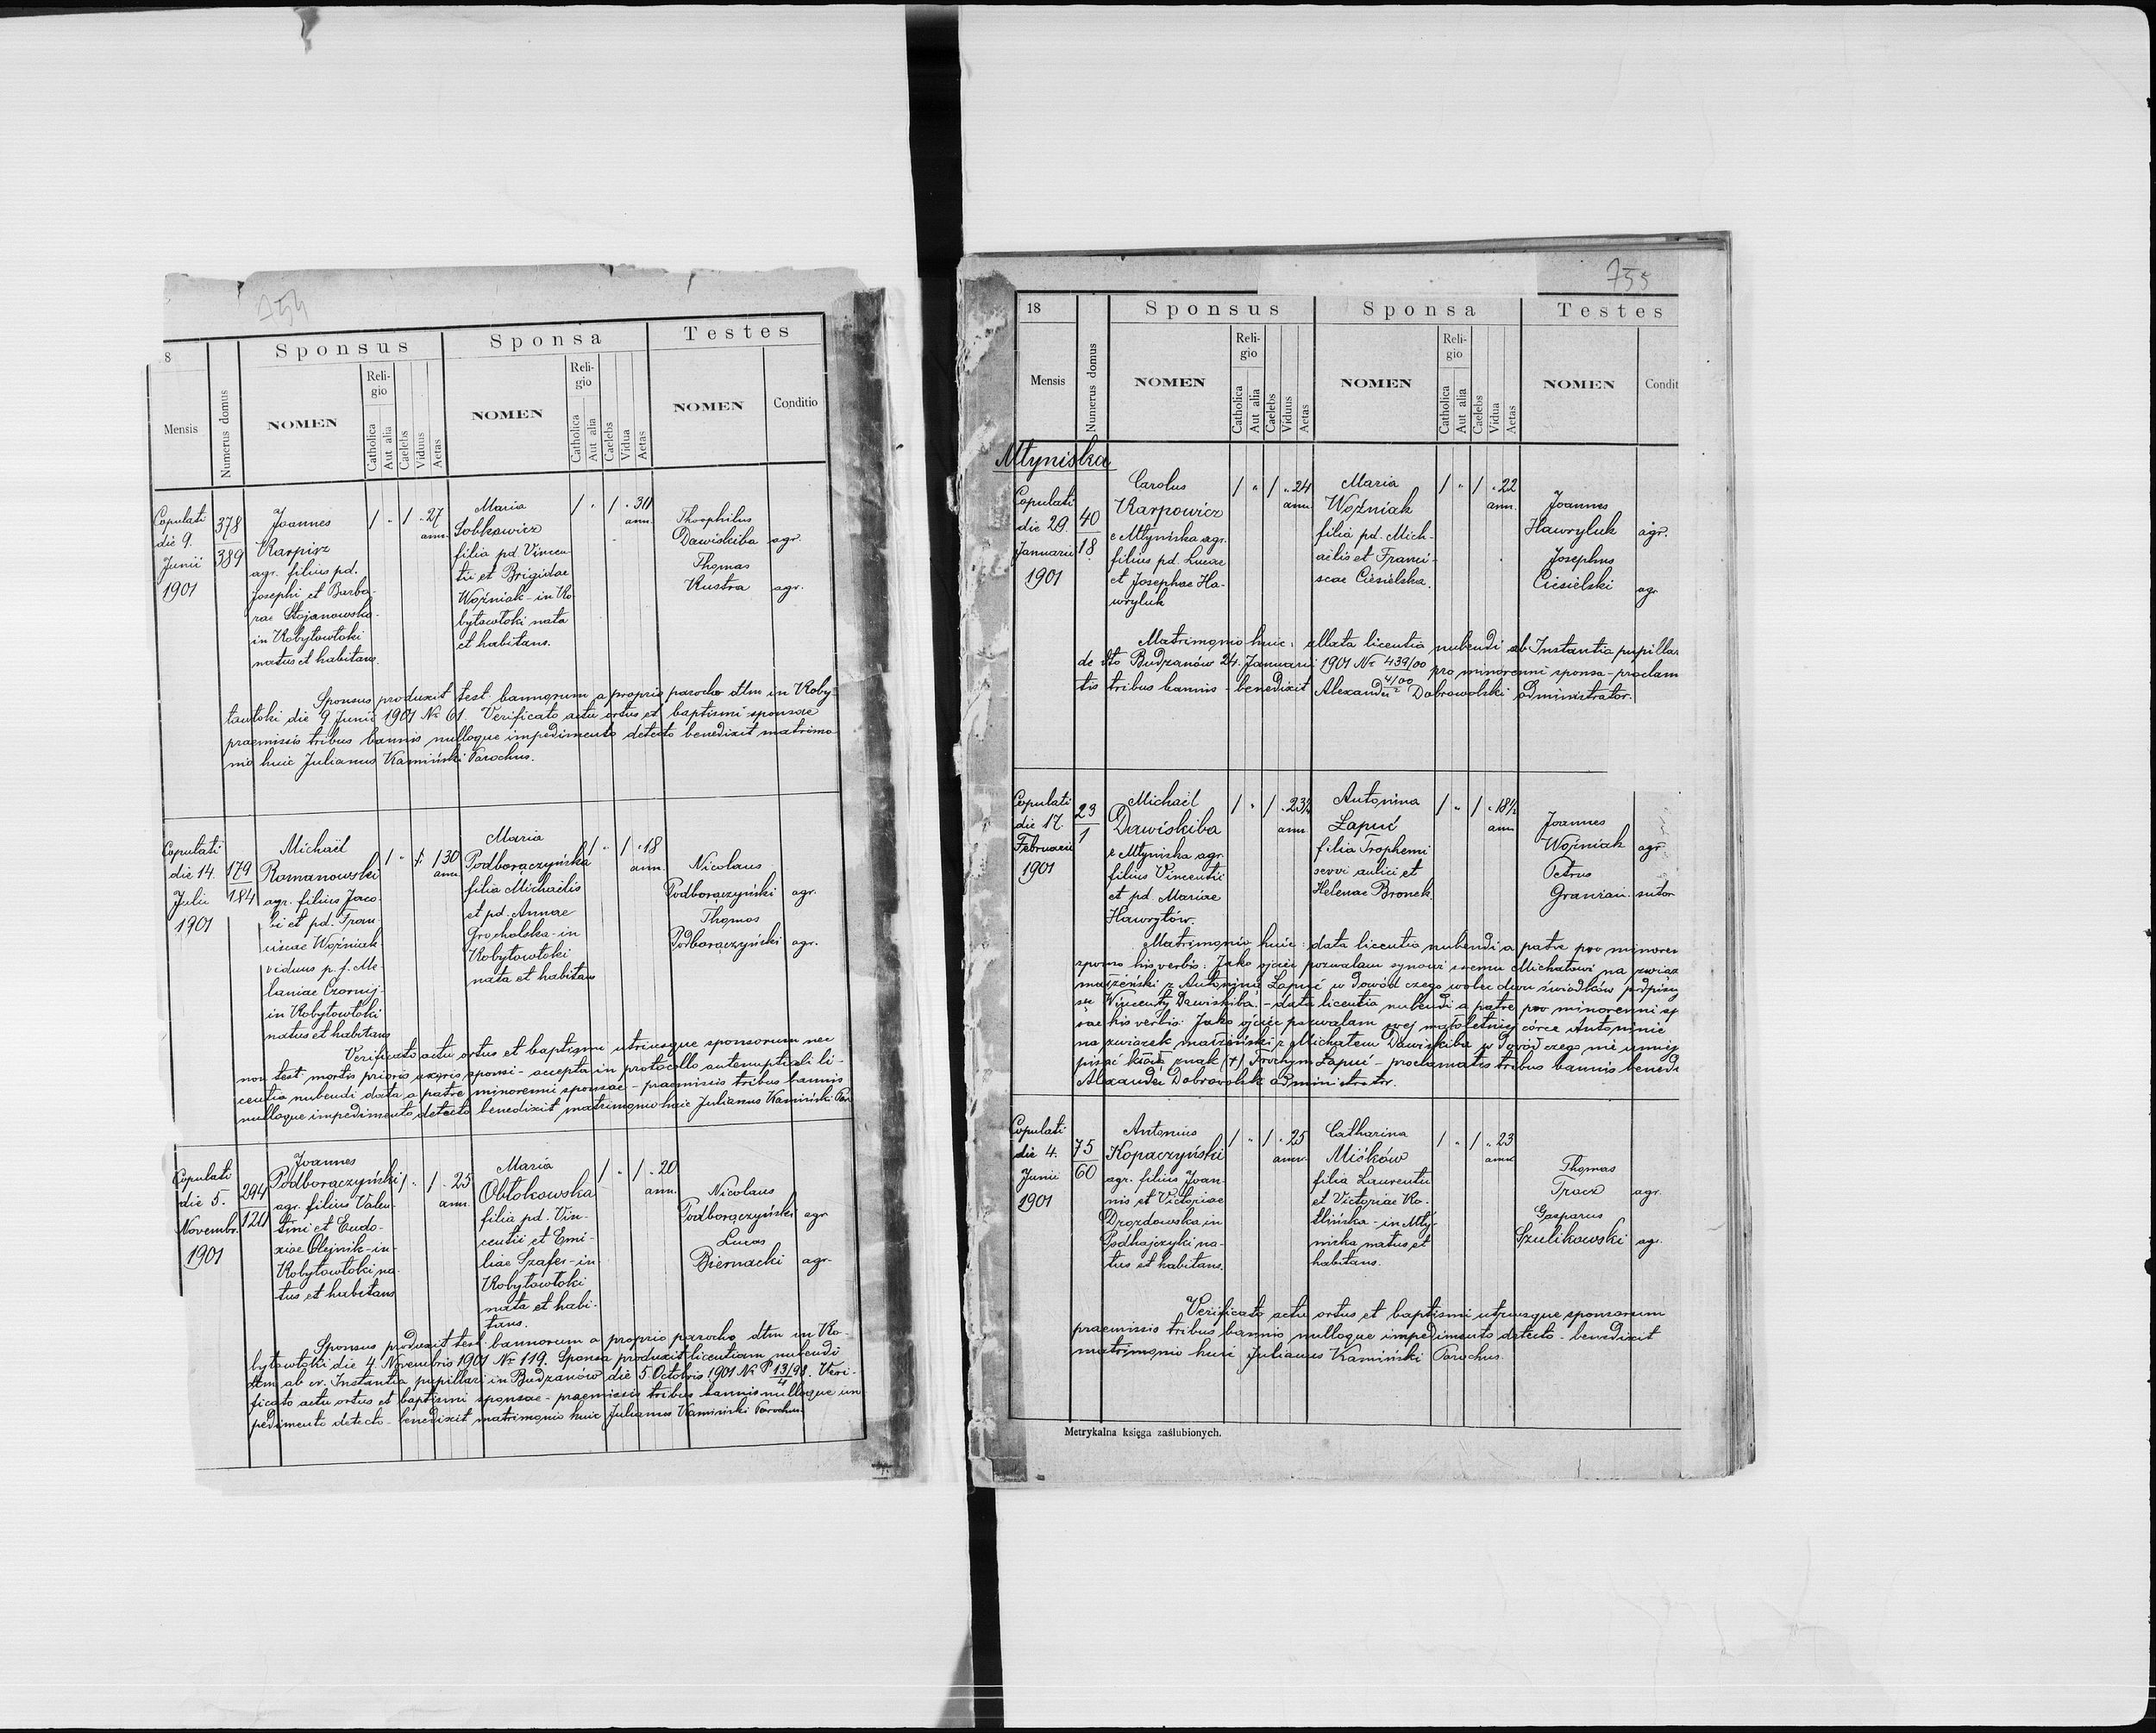 754
8
Sponsus
Sponsa
Testes
Mensis
Numerus domus
NOMEN
Reli-
gio
Catholica
Aut alia
Caelebs
Viduus
Aetas
NOMEN
Reli-
gio
Catholica
Aut alia
Caelebs
Vidua
Aetas
NOMEN
Conditio
Copulati
die 9.
Junii
1901
378
389
Joannes
Karpisz
agr. filius pd.
Josephi et Barba-
rae Stojanowska-
in Kobyłowłoki
natus et habitans.
/ „ / „ 27
ann.
Maria
Sobkowicz
filia pd. Vincen-
tii et Brigidae
Woźniak - in Ko-
byłowłoki nata
et habitans.
/ „ / „
ann.
Theophilus
Dawiskiba agr.
Thomas
Kustra agr.
Sponsus produxit test. bannorum a proprio parocho dtm in Koby-
łowłoki die 9 Junii 1901 No 61. Verificato actu ortus et baptismi sponsae
praemissis tribus bannis nulloque impedimento detecto benedixit matrimo-
nio huic Julianus Kamiński Parochus.
Copulati
die 14.
Julii
1901
179
184
Michaël
Romanowski
agr. filius Jaco-
bi et pd. Fran-
ciscae Woźniak-
viduus p. f. Me-
laniae Czornij-
in Kobyłowłoki
natus et habitans
/ „ 30
ann.
Maria
Podborączyńska
filia Michaëlis
et pd. Annae
Grocholska - in
Kobyłowłoki
nata et habitans
/ „ / „ 18
ann.
Nicolaus
Podborączyński agr.
Thomas
Podborączyński agr.
Verificato actu ortus et baptismi utriusque sponsorum nec
non test. mortis prioris uxoris sponsi - accepta in protocollo antenuptiali li-
centia nubendi data a patre minorenni sponsae - praemissis tribus bannis
nulloque impedimento detecto benedixit matrimonio huic Julianus Kamiński Par
Copulati
die 5.
Novembr.
1901
294
Joannes
Podborączyński
agr. filius Valen-
tini et Eudo-
xiae Olejnik - in-
Kobyłowłoki na-
tus et habitans
/ „ / „ 25
ann.
Maria
Obłokowska
filia pd. Vin-
centii et Emi-
liae Szafer - in-
Kobyłowłoki
nata et habi-
tans.
/ „ / „ 20
ann.
Nicolaus
Podborączyński agr
Lucas
Biernacki agr.
Sponsus produxit test. bannorum a proprio parocho dtm in Ko-
byłowłoki die 4. Novembris 1901 No 119. Sponsa produxit licentiam nubendi
dtm ab Instantia pupillari in Budzanów die 5 Octobris 1901 No P 13/98. Veri-
4
ficato actu ortus et baptismi sponsae - praemissis tribus bannis nulloque im
pedimento detecto - benedixit matrimonio huic Julianus Kamiński Parochus.
755
18
Sponsus
Sponsa
Testes
Mensis
Numerus domus
NOMEN
Reli-
gio
Catholica
Aut alia
Caelebs
Viduus
Aetas
NOMEN
Reli-
gio
Catholica
Aut alia
Caelebs
Vidua
Aetas
NOMEN
Condit
Młyniska
Copulati
die 29.
Januarii
1901
40
18
Carolus
Karpowicz
e Młyniska agr.
filius pd. Lucae
et Josephae Ha-
wryluk
/ „ / „ 24
ann.
Maria
Woźniak
filia pd. Mich-
aëlis et Franci-
scae Ciesielska.
/ „ / „ 22
ann.
Joannes
Hawryluk agr.
Josephus
Ciesielski agr
Matrimonio huic: allata licentia nubendi ab Instantia pupillar
de dto Budzanów 24. Januarii 1901 No 439/00 pro minorenni sponsa - proclam
4/00
tis tribus bannis - benedixit Alexander Dobrowolski administrator.
Copulati
die 17.
Februarii
1901
23
1
Michaël
Dawiskiba
e Młyniska agr.
filius Vincentii
et pd. Mariae
Hawryłów.
/ „ / „ 23½
ann
Antonina
Łapuć
filia Trophemi
servi aulici et
Helenae Bronek.
/ „ / „ 18½
ann
Joannes
Woźniak agr
Petrus
sutor
Matrimonio huic: data licentia nubendi a patre pro minoren
sponso his verbis: Jako ojciec pozwalam synowi memu Michałowi na związ
małżeński z Antoniną Łapuć w dowód czego wobec dwu świadków podpisuj
się Wincenty Dawiskiba. - data licentia nubendi a patre pro minorenni sp
sae his verbis: Jako ojciec pozwalam swej małoletniej córce Antoninie
na związek małżeński z Michałem Dawiskiba w dowód czego nie umiej
pisać kładę znak (+) Trochym Łapuć - proclamatis tribus bannis bened
Alexander Dobrowolski administrator.
Copulati
die 4.
Junii
1901
75
60
Antonius
Kopaczyński
agr. filius Joan-
nis et Victoriae
Drozdowska in
Podhajczyki na-
tus et habitans.
/ „ / „ 25
ann.
Catharina
Miśków
filia Laurentii
et Victoriae Ko-
ślińska - in Mły-
niska natus et
habitans.
/ „ / „ 23
ann.
Thomas
Tracz agr.
Gasparus
Szulikowski agr.
Verificato actu ortus et baptismi utriusque sponsorum
praemissis tribus bannis nulloque impedimento detecto - benedixit
matrimonio huic Julianus Kamiński Parochus.
Metrykalna księga zaślubionych.